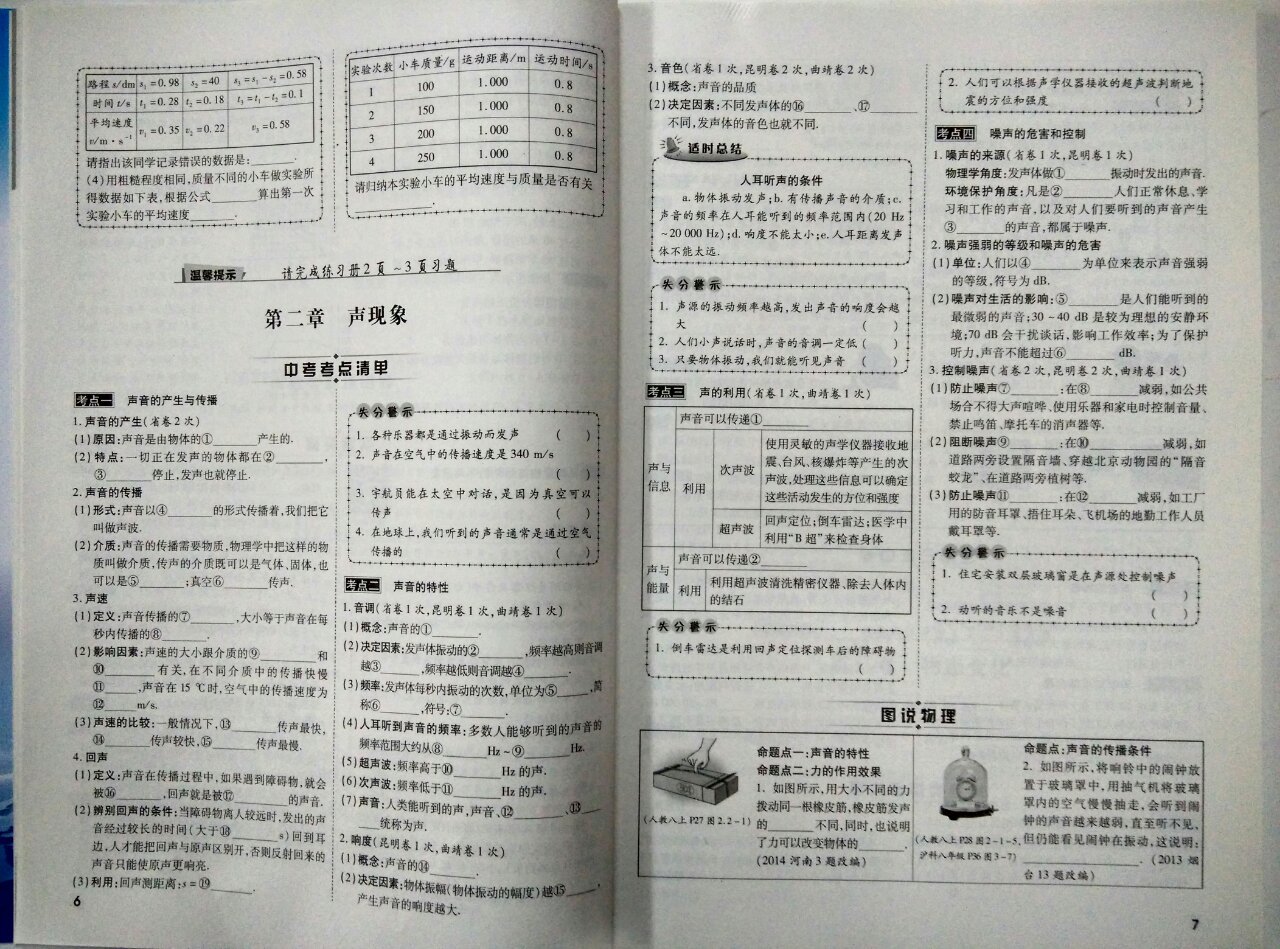 路程 s/dm s₁=0.98 s₂=40 s₃=s₁-s₂=0.58
时间 t/s t₁=0.28 t₂=0.18 t₃=t₁-t₂=0.1
平均速度
v/m·s⁻¹ v₁=0.35 v₂=0.22 v₃=0.58
请指出该同学记录错误的数据是:______.
(4)用粗糙程度相同,质量不同的小车做实验所
得数据如下表,根据公式______算出第一次
实验小车的平均速度______.
实验次数 小车质量/g 运动距离/m 运动时间/s
1 100 1.000 0.8
2 150 1.000 0.8
3 200 1.000 0.8
4 250 1.000 0.8
请归纳本实验小车的平均速度与质量是否有关
______.
温馨提示 请完成练习册2页~3页习题
第二章 声现象
中考考点清单
考点一 声音的产生与传播
1. 声音的产生(省卷2次)
(1)原因:声音是由物体的①______产生的.
(2)特点:一切正在发声的物体都在②______,
③______停止,发声也就停止.
2. 声音的传播
(1)形式:声音以④______的形式传播着,我们把它
叫做声波.
(2)介质:声音的传播需要物质,物理学中把这样的物
质叫做介质,传声的介质既可以是气体、固体,也
可以是⑤______;真空⑥______传声.
3. 声速
(1)定义:声音传播的⑦______,大小等于声音在每
秒内传播的⑧______.
(2)影响因素:声速的大小跟介质的⑨______和
⑩______有关,在不同介质中的传播快慢
⑪______,声音在15 ℃时,空气中的传播速度为
⑫______m/s.
(3)声速的比较:一般情况下,⑬______传声最快,
⑭______传声较快,⑮______传声最慢.
4. 回声
(1)定义:声音在传播过程中,如果遇到障碍物,就会
被⑯______,回声就是被⑰______的声音.
(2)辨别回声的条件:当障碍物离人较远时,发出的声
音经过较长的时间(大于⑱______s)回到耳
边,人才能把回声与原声区别开,否则反射回来的
声音只能使原声更响亮.
(3)利用:回声测距离:s=⑲______.
6
失分警示
1. 各种乐器都是通过振动而发声 ( )
2. 声音在空气中的传播速度是340 m/s
( )
3. 宇航员能在太空中对话,是因为真空可以
传声 ( )
4. 在地球上,我们听到的声音通常是通过空气
传播的 ( )
考点二 声音的特性
1. 音调(省卷1次,昆明卷1次,曲靖卷1次)
(1)概念:声音的①______.
(2)决定因素:发声体振动的②______,频率越高则音调
越③______,频率越低则音调越④______.
(3)频率:发声体每秒内振动的次数,单位为⑤______,简
称⑥______,符号:⑦______.
(4)人耳听到声音的频率:多数人能够听到的声音的
频率范围大约从⑧______Hz~⑨______Hz.
(5)超声波:频率高于⑩______Hz的声.
(6)次声波:频率低于⑪______Hz的声.
(7)声音:人类能听到的声,声音、⑫______、⑬____
____统称为声.
2. 响度(昆明卷1次,曲靖卷1次)
(1)概念:声音的⑭______.
(2)决定因素:物体振幅(物体振动的幅度)越⑮______,
产生声音的响度越大.
3. 音色(省卷1次,昆明卷2次,曲靖卷2次)
(1)概念:声音的品质
(2)决定因素:不同发声体的⑯______、⑰______
不同,发声体的音色也就不同.
适时总结
人耳听声的条件
a. 物体振动发声;b. 有传播声音的介质;c.
声音的频率在人耳能听到的频率范围内(20 Hz
~20 000 Hz);d. 响度不能太小;e. 人耳距离发声
体不能太远.
失分警示
1. 声源的振动频率越高,发出声音的响度会越
大 ( )
2. 人们小声说话时,声音的音调一定低 ( )
3. 只要物体振动,我们就能听见声音 ( )
考点三 声的利用(省卷1次,曲靖卷1次)
声与信息 声音可以传递①______
利用 次声波 使用灵敏的声学仪器接收地
震、台风、核爆炸等产生的次
声波,处理这些信息可以确定
这些活动发生的方位和强度
超声波 回声定位;倒车雷达;医学中
利用“B超”来检查身体
声与能量 声音可以传递②______
利用 利用超声波清洗精密仪器、除去人体内
的结石
失分警示
1. 倒车雷达是利用回声定位探测车后的障碍物
( )
2. 人们可以根据声学仪器接收的超声波判断地
震的方位和强度 ( )
考点四 噪声的危害和控制
1. 噪声的来源(省卷1次,昆明卷1次)
物理学角度:发声体做①______振动时发出的声音.
环境保护角度:凡是②______人们正常休息、学
习和工作的声音,以及对人们要听到的声音产生
③______的声音,都属于噪声.
2. 噪声强弱的等级和噪声的危害
(1)单位:人们以④______为单位来表示声音强弱
的等级,符号为dB.
(2)噪声对生活的影响:⑤______是人们能听到的
最微弱的声音;30~40 dB是较为理想的安静环
境;70 dB会干扰谈话,影响工作效率;为了保护
听力,声音不能超过⑥______dB.
3. 控制噪声(省卷2次,昆明卷2次,曲靖卷1次)
(1)防止噪声⑦______:在⑧______减弱,如公共
场合不得大声喧哗、使用乐器和家电时控制音量、
禁止鸣笛、摩托车的消声器等.
(2)阻断噪声⑨______:在⑩______减弱,如
道路两旁设置隔音墙、穿越北京动物园的“隔音
蛟龙”、在道路两旁植树等.
(3)防止噪声⑪______:在⑫______减弱,如工厂
用的防音耳罩、捂住耳朵、飞机场的地勤工作人员
戴耳罩等.
失分警示
1. 住宅安装双层玻璃窗是在声源处控制噪声
( )
2. 动听的音乐不是噪音 ( )
图说物理
(人教八上P27图2.2-1)
命题点一:声音的特性
命题点二:力的作用效果
1. 如图所示,用大小不同的力
拨动同一根橡皮筋,橡皮筋发声
的______不同,同时,也说明
了力可以改变物体的______.
(2014河南3题改编)
(人教八上P28图2-1-5,
沪科八年级P36图3-7)
命题点:声音的传播条件
2. 如图所示,将响铃中的闹钟放
置于玻璃罩中,用抽气机将玻璃
罩内的空气慢慢抽走,会听到闹
钟的声音越来越弱,直至听不见,
但仍能看见闹钟在振动,这说明:
______. (2013烟
台13题改编)
7